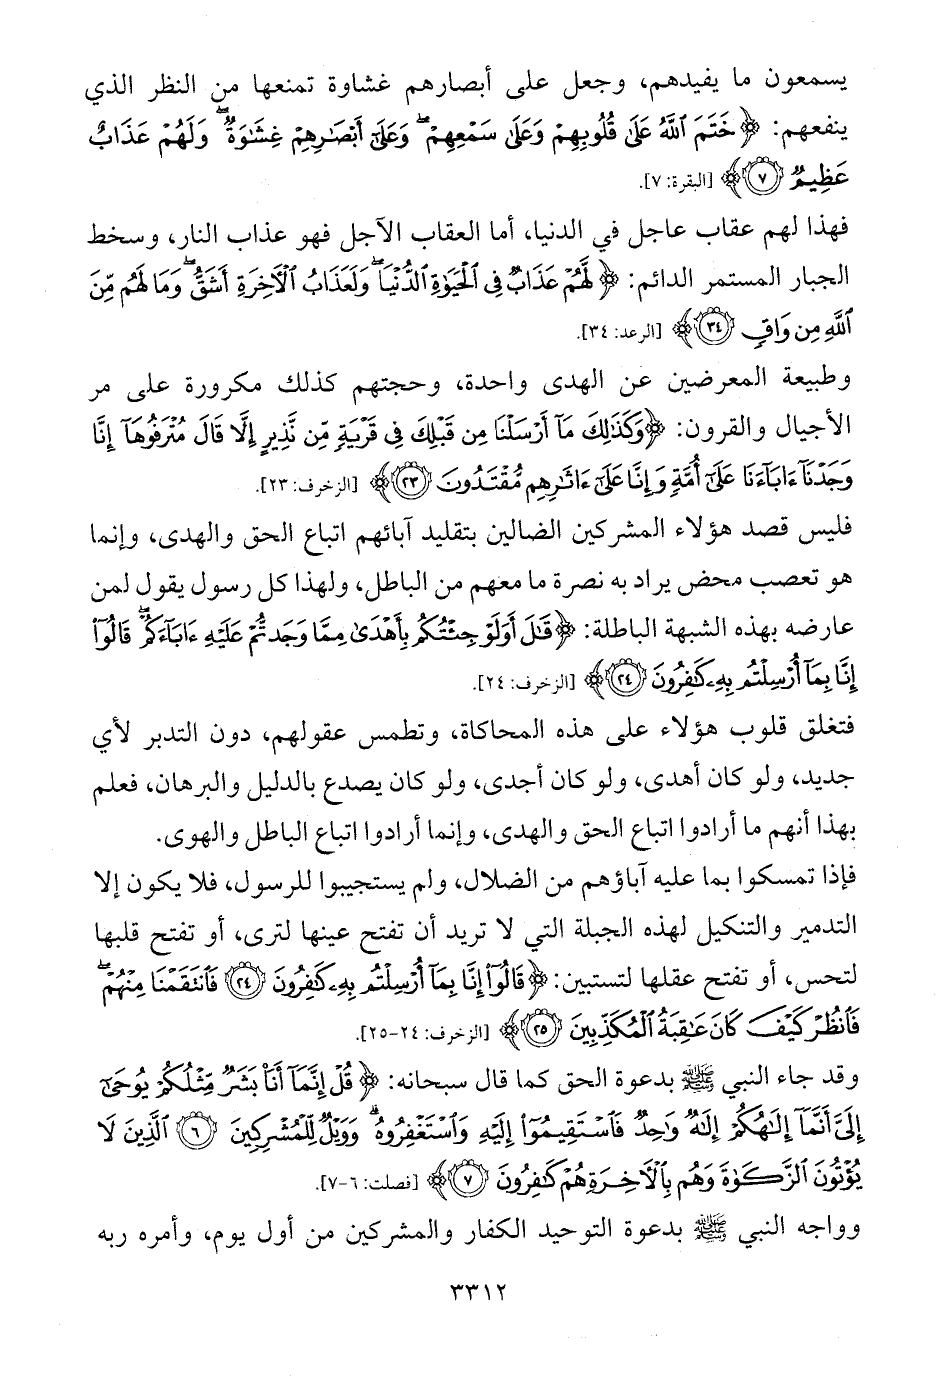 يسمعون ما يفيدهم، وجعل على أبصارهم غشاوة تمنعها من النظر الذي
ينفعهم: ﴿خَتَمَ اللَّهُ عَلَىٰ قُلُوبِهِمْ وَعَلَىٰ سَمْعِهِمْ ۖ وَعَلَىٰ أَبْصَٰرِهِمْ غِشَٰوَةٌ ۖ وَلَهُمْ عَذَابٌ
عَظِيمٌ ﴿٧﴾﴾ [البقرة: ٧].
فهذا لهم عقاب عاجل في الدنيا، أما العقاب الآجل فهو عذاب النار، وسخط
الجبار المستمر الدائم: ﴿لَّهُمْ عَذَابٌ فِي ٱلْحَيَوٰةِ ٱلدُّنْيَا ۖ وَلَعَذَابُ ٱلْأَخِرَةِ أَشَقُّ ۖ وَمَا لَهُم مِّنَ
ٱللَّهِ مِن وَاقٍ ﴿٣٤﴾﴾ [الرعد: ٣٤].
وطبيعة المعرضين عن الهدى واحدة، وحجتهم كذلك مكرورة على مر
الأجيال والقرون: ﴿وَكَذَٰلِكَ مَآ أَرْسَلْنَا مِن قَبْلِكَ فِي قَرْيَةٍ مِّن نَّذِيرٍ إِلَّا قَالَ مُتْرَفُوهَآ إِنَّا
وَجَدْنَآ ءَابَآءَنَا عَلَىٰٓ أُمَّةٍ وَإِنَّا عَلَىٰٓ ءَاثَٰرِهِم مُّقْتَدُونَ ﴿٢٣﴾﴾ [الزخرف: ٢٣].
فليس قصد هؤلاء المشركين الضالين بتقليد آبائهم اتباع الحق والهدى، وإنما
هو تعصب محض يراد به نصرة ما معهم من الباطل، ولهذا كل رسول يقول لمن
عارضه بهذه الشبهة الباطلة: ﴿قَٰلَ أَوَلَوْ جِئْتُكُم بِأَهْدَىٰ مِمَّا وَجَدتُّمْ عَلَيْهِ ءَابَآءَكُمْ ۖ قَالُوٓا۟
إِنَّا بِمَآ أُرْسِلْتُم بِهِۦ كَٰفِرُونَ ﴿٢٤﴾﴾ [الزخرف: ٢٤].
فتغلق قلوب هؤلاء على هذه المحاكاة، وتطمس عقولهم، دون التدبر لأي
جديد، ولو كان أهدى، ولو كان أجدى، ولو كان يصدع بالدليل والبرهان، فعلم
بهذا أنهم ما أرادوا اتباع الحق والهدى، وإنما أرادوا اتباع الباطل والهوى.
فإذا تمسكوا بما عليه آباؤهم من الضلال، ولم يستجيبوا للرسول، فلا يكون إلا
التدمير والتنكيل لهذه الجبلة التي لا تريد أن تفتح عينها لترى، أو تفتح قلبها
لتحس، أو تفتح عقلها لتستبين: ﴿قَالُوٓا۟ إِنَّا بِمَآ أُرْسِلْتُم بِهِۦ كَٰفِرُونَ ﴿٢٤﴾ فَٱنتَقَمْنَا مِنْهُمْ ۖ
فَٱنظُرْ كَيْفَ كَانَ عَٰقِبَةُ ٱلْمُكَذِّبِينَ ﴿٢٥﴾﴾ [الزخرف: ٢٤-٢٥].
وقد جاء النبي ﷺ بدعوة الحق كما قال سبحانه: ﴿قُلْ إِنَّمَآ أَنَا۠ بَشَرٌ مِّثْلُكُمْ يُوحَىٰٓ
إِلَىَّ أَنَّمَآ إِلَٰهُكُمْ إِلَٰهٌ وَٰحِدٌ فَٱسْتَقِيمُوٓا۟ إِلَيْهِ وَٱسْتَغْفِرُوهُ ۗ وَوَيْلٌ لِّلْمُشْرِكِينَ ﴿٦﴾ ٱلَّذِينَ لَا
يُؤْتُونَ ٱلزَّكَوٰةَ وَهُم بِٱلْأَخِرَةِ هُمْ كَٰفِرُونَ ﴿٧﴾﴾ [فصلت: ٦-٧].
وواجه النبي ﷺ بدعوة التوحيد الكفار والمشركين من أول يوم، وأمره ربه
٣٣١٢